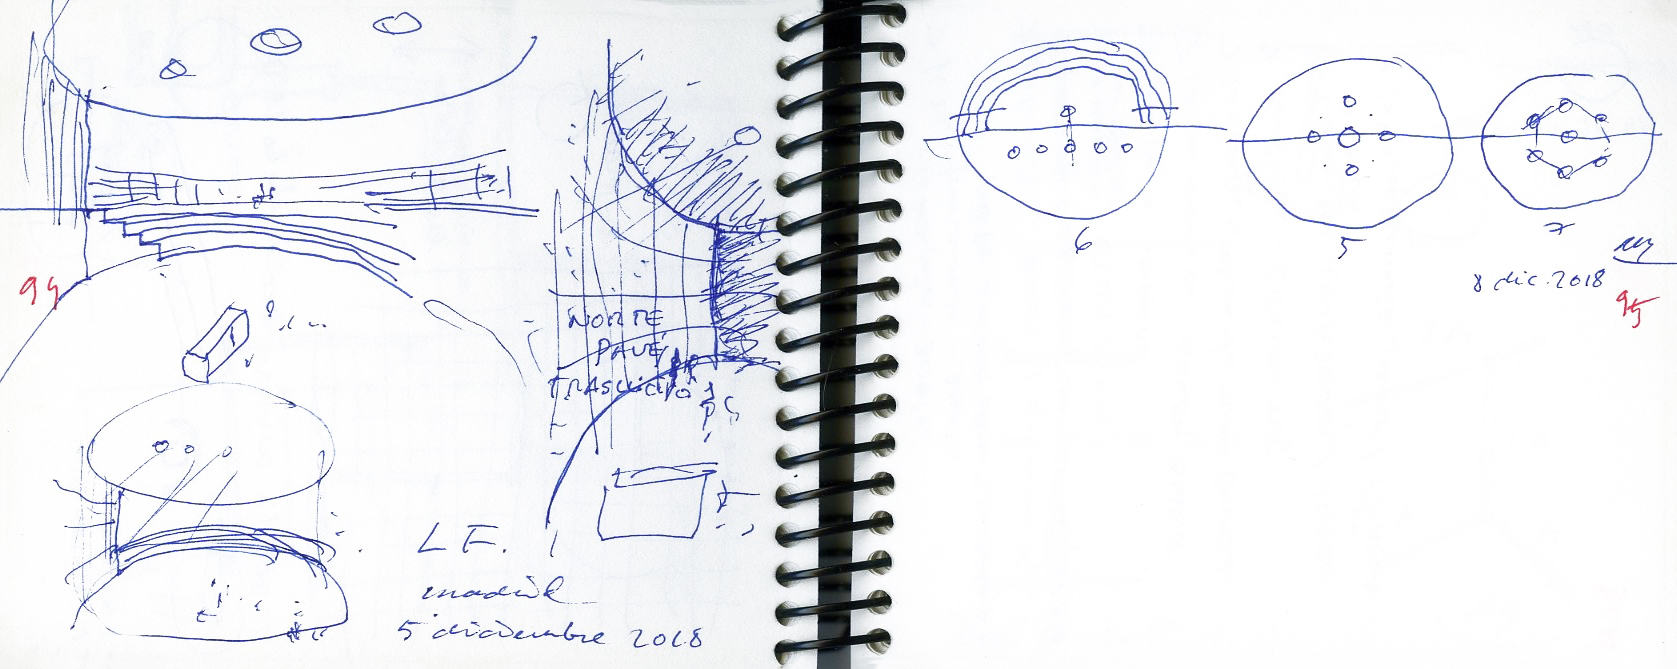 94
NORTE
PAVÉ
TRASLÚCIDO
L F.
madrid
5 diciembre 2018
6
5
7
8 dic. 2018
95